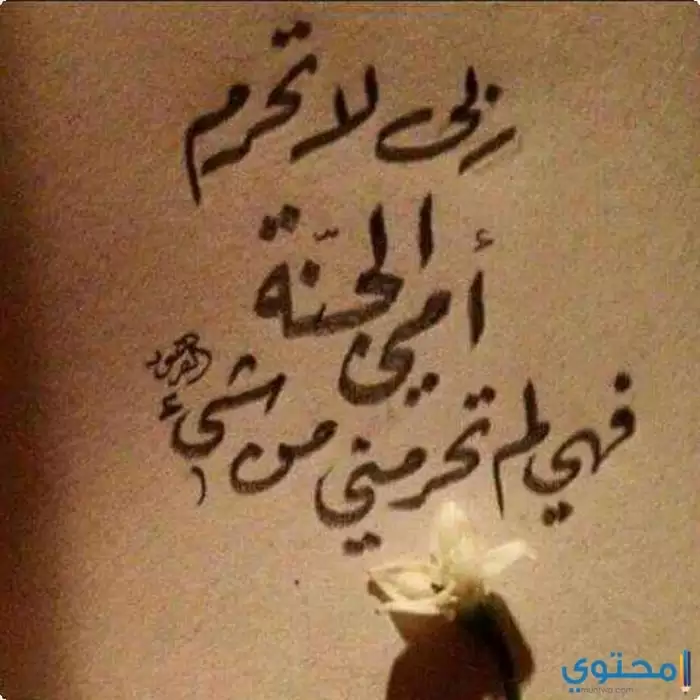 ربي لا تحرم
أمي الجنة
فهي لم تحرمني من شيء
محتوي
muhtwa.com